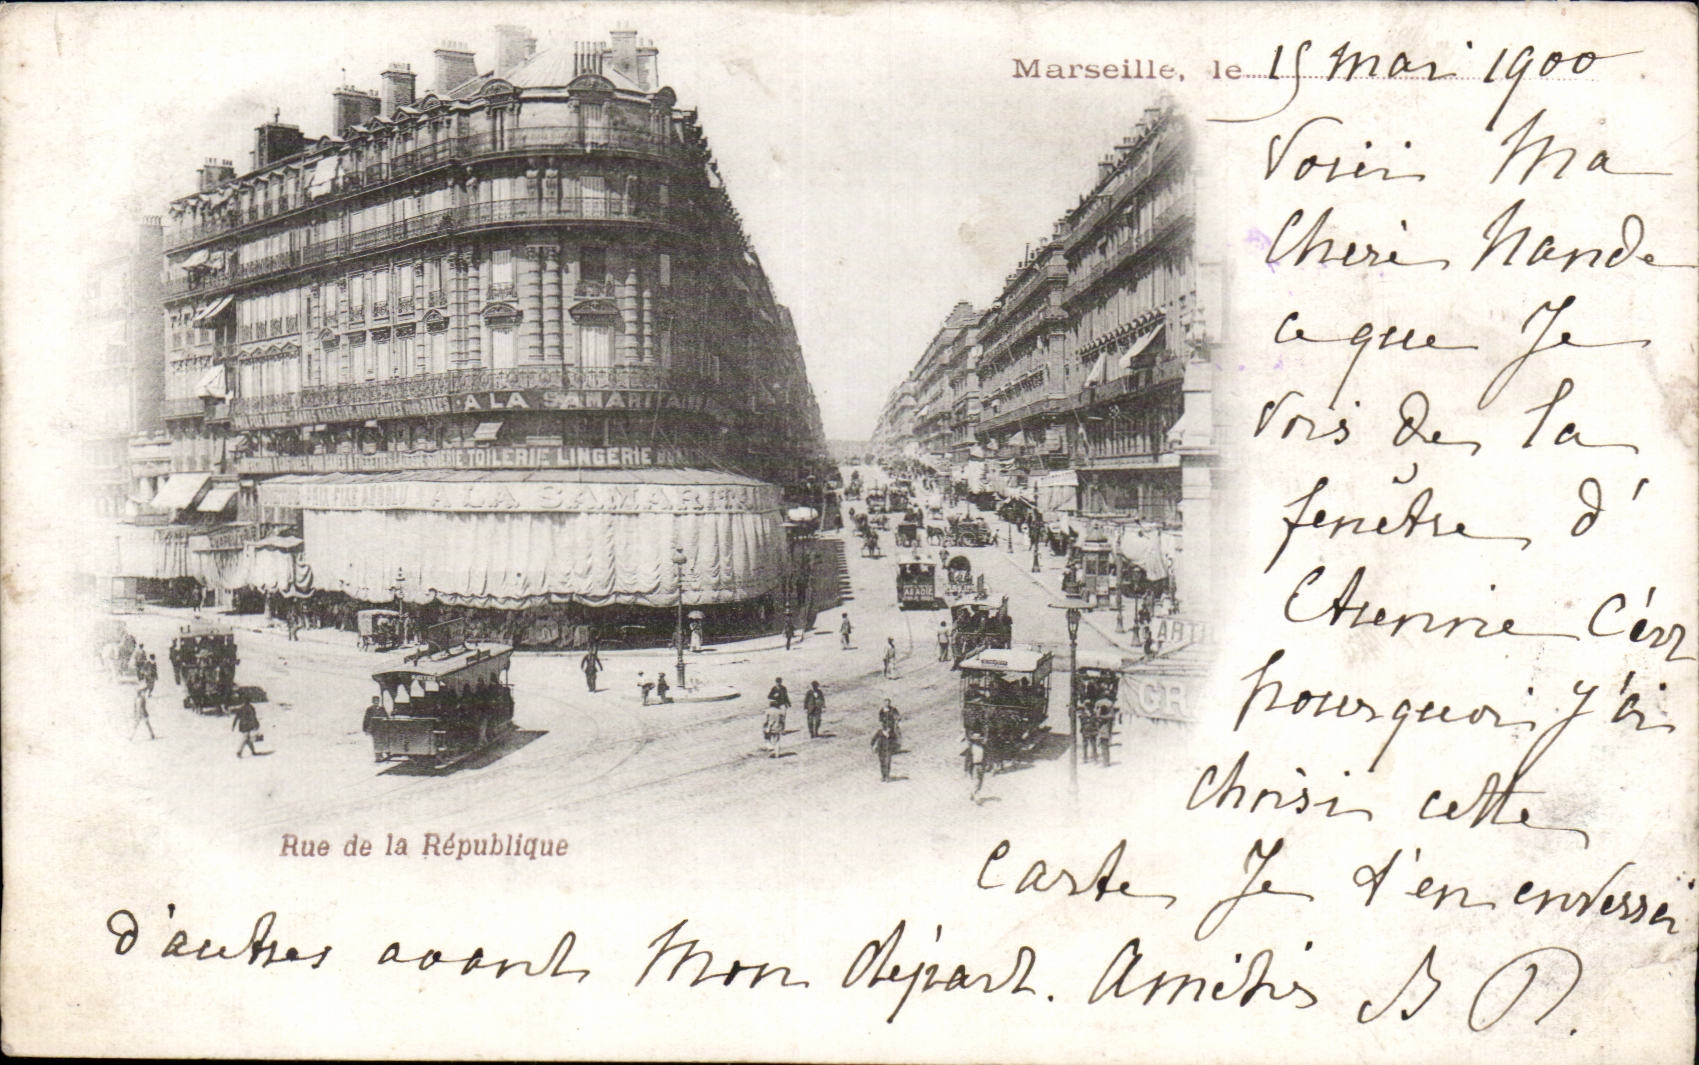 Marseille, le 15 mai 1900
Voici Ma
Chère Nande
ce que Je
vois de la
fenêtre d'
Etienne C'est
pourquoi J'ai
choisi cette
Carte Je t'en enverrai
d'autres avant Mon départ. Amitiés B P.
A LA SAMARITAINE
TOILERIE LINGERIE
PRIX FIXE ABSOLU A LA SAMARIT
ABADIE
ARTI
GRA
Rue de la République